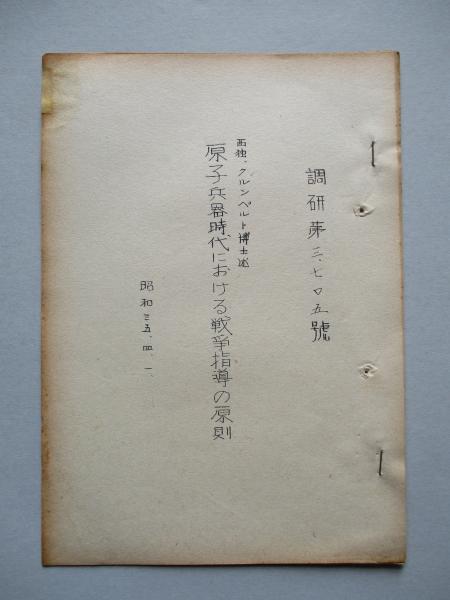 調研第三、七〇五號
西独、クルンペルト博士述
原子兵器時代における戦争指導の原則
昭和三五、四、一、